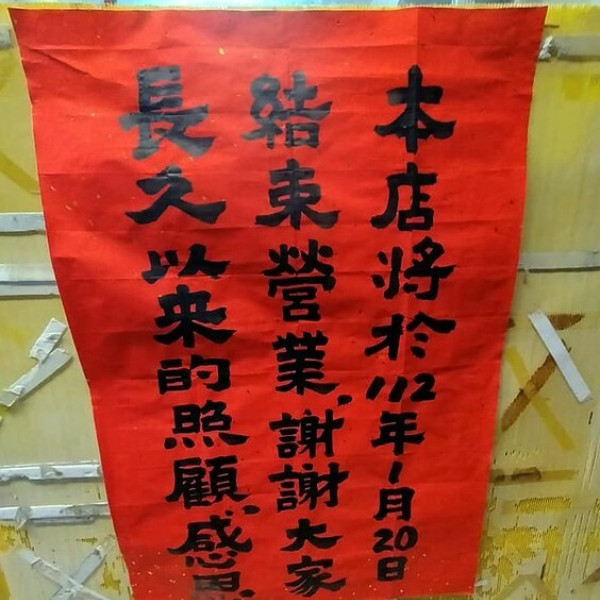 本店將於112年1月20日
結束營業,謝謝大家
長久以來的照顧、感恩